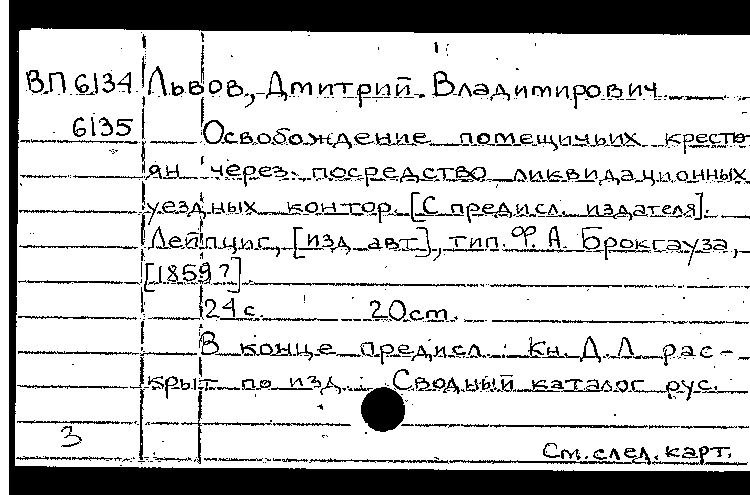 ВП 6134 Львов, Дмитрий Владимирович
6135 Освобождение помещичьих кресть-
ян через посредство ликвидационных
уездных контор. [С предисл. издателя].
Лейпциг, [изд. авт], тип. Ф. А. Брокгауза,
[1859?]
24 с. 20 cm.
В конце предисл.: Кн. Д. Л. рас-
крыт по изд.: Сводный каталог рус.
3 См. след. карт.